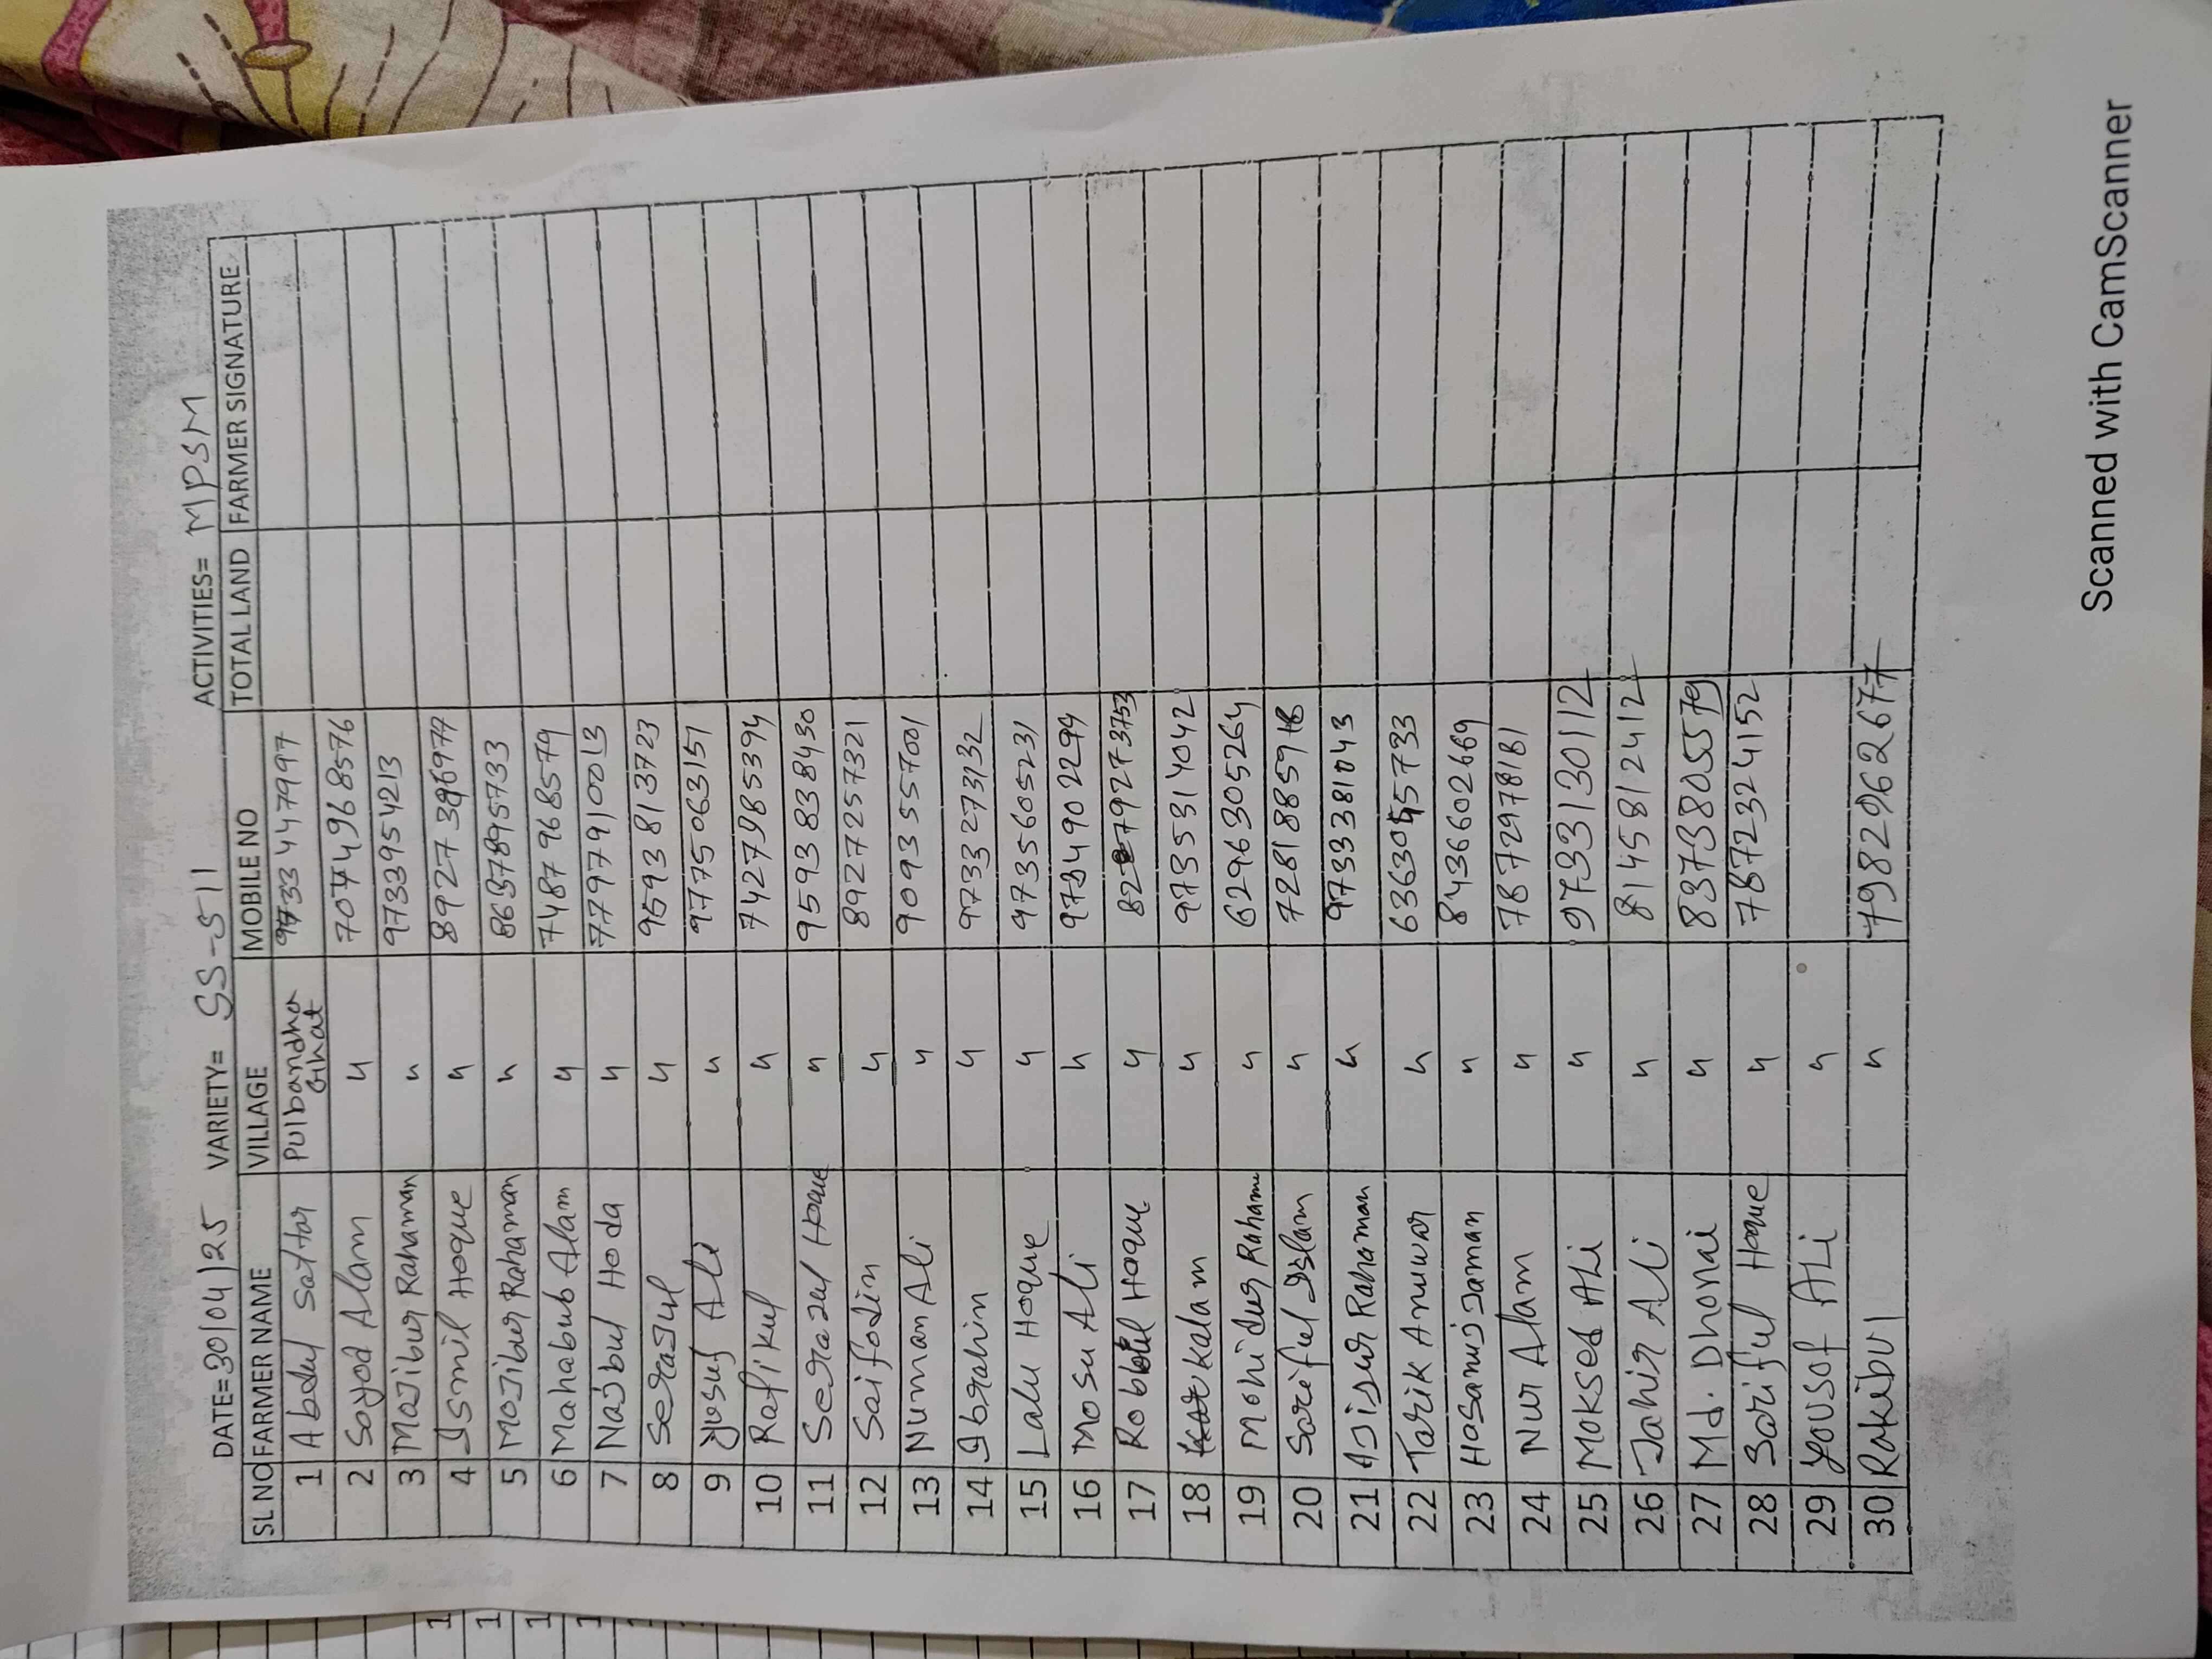 DATE=30/04/25 VARIETY= SS-511 ACTIVITIES= MPSM
SL NO FARMER NAME VILLAGE MOBILE NO TOTAL LAND FARMER SIGNATURE
1 Abdul Sattar Pulbandha Ghat 9733447997
2 Sayod Alam 〃 7074968576
3 Mojibur Rahaman 〃 9733954213
4 Ismil Hoque 〃
5 Mojibur Rahaman 〃 8637895733
6 Mahabub Alam 〃 7487968579
7 Najbul Hoda 〃 7797910013
8 Serajul 〃 9593813723
9 Yusuf Ali 〃 9775063151
10 Rafikul 〃 7427985394
11 Serazul Hoque 〃 9593838430
12 Saifodin 〃 8927257321
13 Numan Ali 〃 9093557001
14 Ibrahim 〃 9733273132
15 Lalu Hoque 〃 9735605231
16 Mosu Ali 〃 9734902294
17 Robiul Hoque 〃
18 Kalam 〃 9735314042
19 Mohidur Rahama 〃 6296305264
20 Sariful Islam 〃
21 Ajijur Rahaman 〃 9733381043
22 Tarik Anuwar 〃
23 Hosanujjaman 〃 8436602669
24 Nur Alam 〃 7872978181
25 Moksed Ali 〃 9733130112
26 Jahir Ali 〃 8145812412
27 Md. Dhonai 〃 8373805579
28 Sariful Hoque 〃 7872324152
29 Yousof Ali 〃
30 Rakibul 〃 7982962677
Scanned with CamScanner